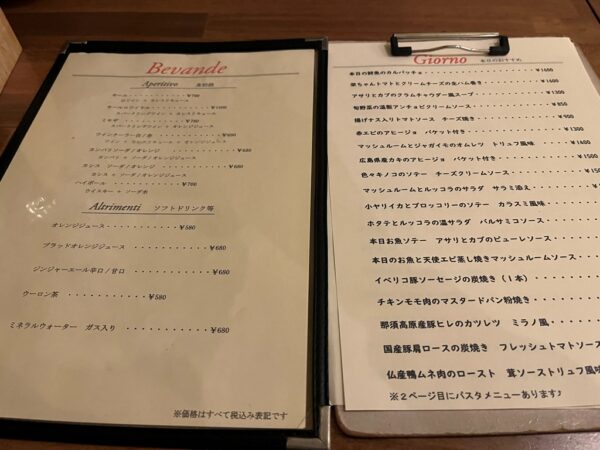 Bevande
Aperitivo 食前酒
キール・・・・・・・・・・¥700
白ワイン + カシスリキュール
キールロワイヤル・・・・・・・・・・¥1000
スパークリングワイン + カシスリキュール
ミモザ・・・・・・・・・・¥780
スパークリングワイン + オレンジジュース
ワインクーラー白/赤・・・・・・・・¥680
ワイン + カシスリキュール + オレンジジュース
カンパリソーダ/オレンジ・・・・・・・・¥680
カンパリ + ソーダ/オレンジジュース
カシス ソーダ/オレンジ・・・・・・・・¥680
カシス + ソーダ/オレンジジュース
ハイボール・・・・・・・・¥700
ウイスキー + ソーダ水
Altrimenti ソフトドリンク等
オレンジジュース・・・・・・・・・¥580
ブラッドオレンジジュース・・・・・・・・¥680
ジンジャーエール辛口/甘口・・・・・・・・¥680
ウーロン茶・・・・・・・・・・¥580
ミネラルウォーター ガス入り・・・・・・・・¥680
※価格はすべて税込み表記です
Giorno 本日のおすすめ
本日の鮮魚のカルパッチョ・・・・・・・・¥1600
栗ちゃんトマトとクリームチーズの生ハム巻き・・・・・¥1600
アサリとカブのクラムチャウダー風スープ・・・・・¥1300
旬野菜の温製アンチョビクリームソース・・・・・¥850
揚げナス入りトマトソース チーズ焼き・・・・・¥900
赤エビのアヒージョ バケット付き・・・・・¥1300
マッシュルームとジャガイモのオムレツ トリュフ風味・・・¥1400
広島県産カキのアヒージョ バケット付き・・・・¥1500
色々キノコのソテー チーズクリームソース・・・・・¥1500
マッシュルームとルッコラのサラダ サラミ添え・・・・¥
小ヤリイカとブロッコリーのソテー カラスミ風味・・・・
ホタテとルッコラの温サラダ バルサミコソース・・・・
本日お魚ソテー アサリとカブのピューレソース・・・・
本日のお魚と天使エビ蒸し焼きマッシュルームソース・・・
イベリコ豚ソーセージの炭焼き(1本)・・・・・・
チキンモモ肉のマスタードパン粉焼き・・・・・・・
那須高原産豚ヒレのカツレツ ミラノ風・・・・・
国産豚肩ロースの炭焼き フレッシュトマトソース
仏産鴨ムネ肉のロースト 茸ソーストリュフ風味
※2ページ目にパスタメニューあります♪